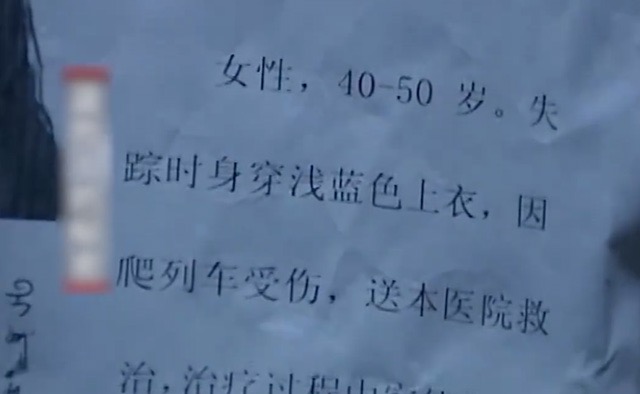 女性，40-50 岁。失
踪时身穿浅蓝色上衣，因
爬列车受伤，送本医院救
治，治疗过程中